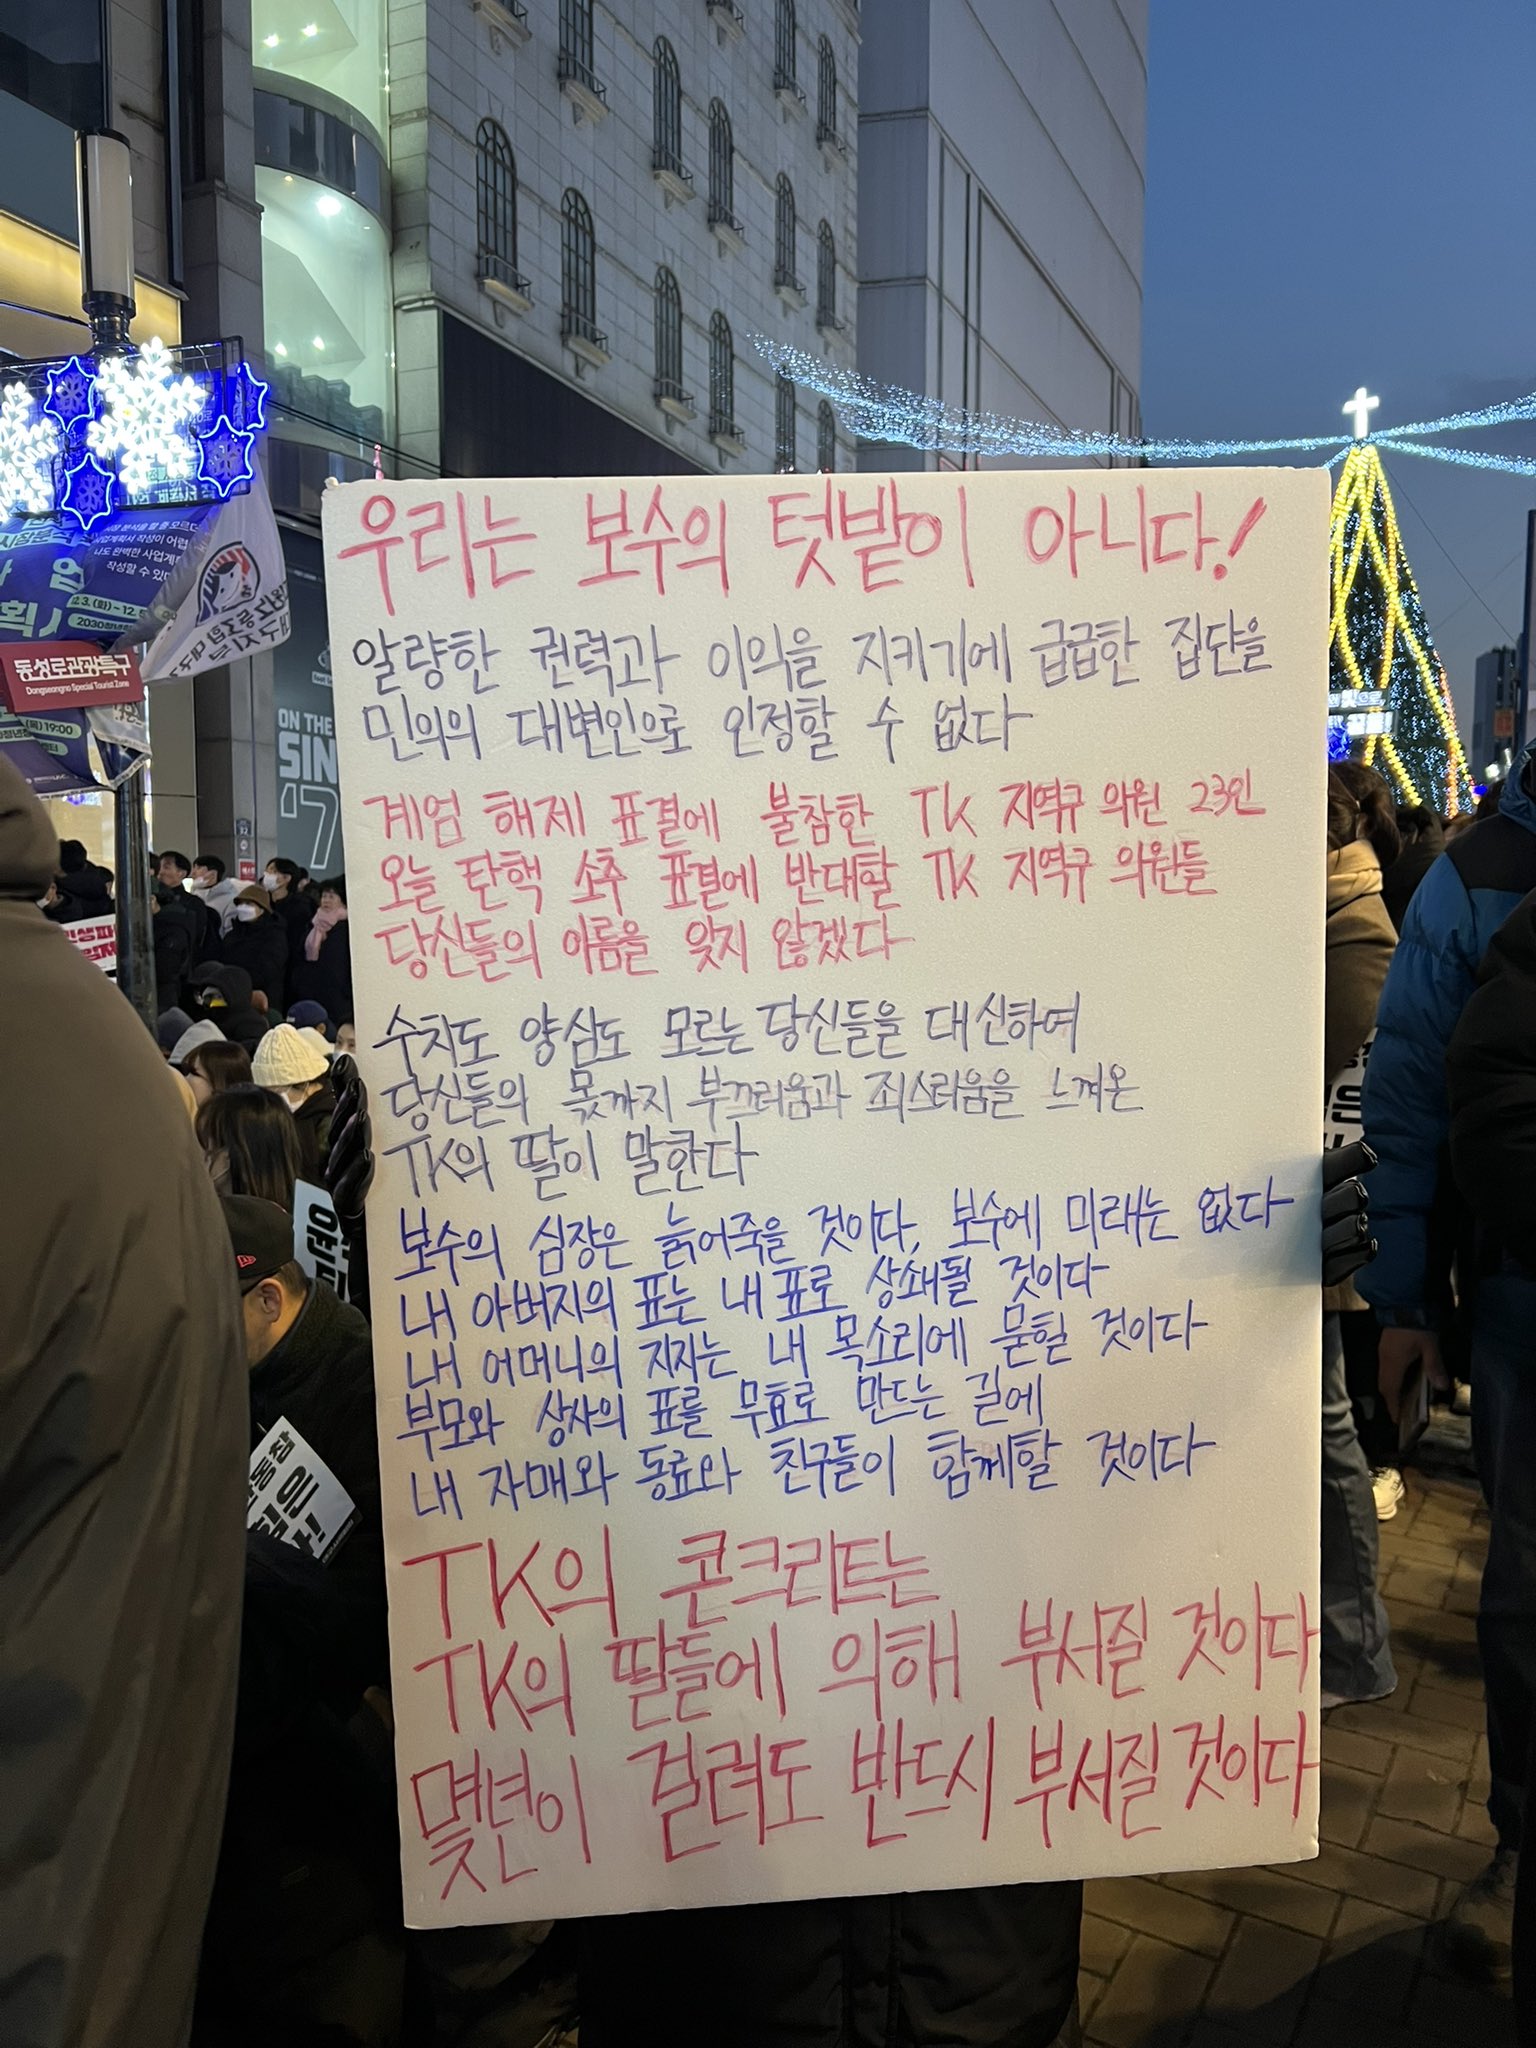 우리는 보수의 텃밭이 아니다!
알량한 권력과 이익을 지키기에 급급한 집단을
민의의 대변인으로 인정할 수 없다
계엄 해제 표결에 불참한 TK 지역구 의원 23인
오늘 탄핵 소추 표결에 반대할 TK 지역구 의원들
당신들의 이름을 잊지 않겠다
수치도 양심도 모르는 당신들을 대신하여
당신들의 몫까지 부끄러움과 죄스러움을 느껴온
TK의 딸이 말한다
보수의 심장은 늙어죽을 것이다, 보수에 미래는 없다
내 아버지의 표는 내 표로 상쇄될 것이다
내 어머니의 지지는 내 목소리에 묻힐 것이다
부모와 상사의 표를 무효로 만드는 길에
내 자매와 동료와 친구들이 함께할 것이다
TK의 콘크리트는
TK의 딸들에 의해 부서질 것이다
몇년이 걸려도 반드시 부서질 것이다
동성로관광특구
Dongseongno Special Tourist Zone
작성할 수 있다
(화)~12.5
19:00
ON THE
SIN
'7